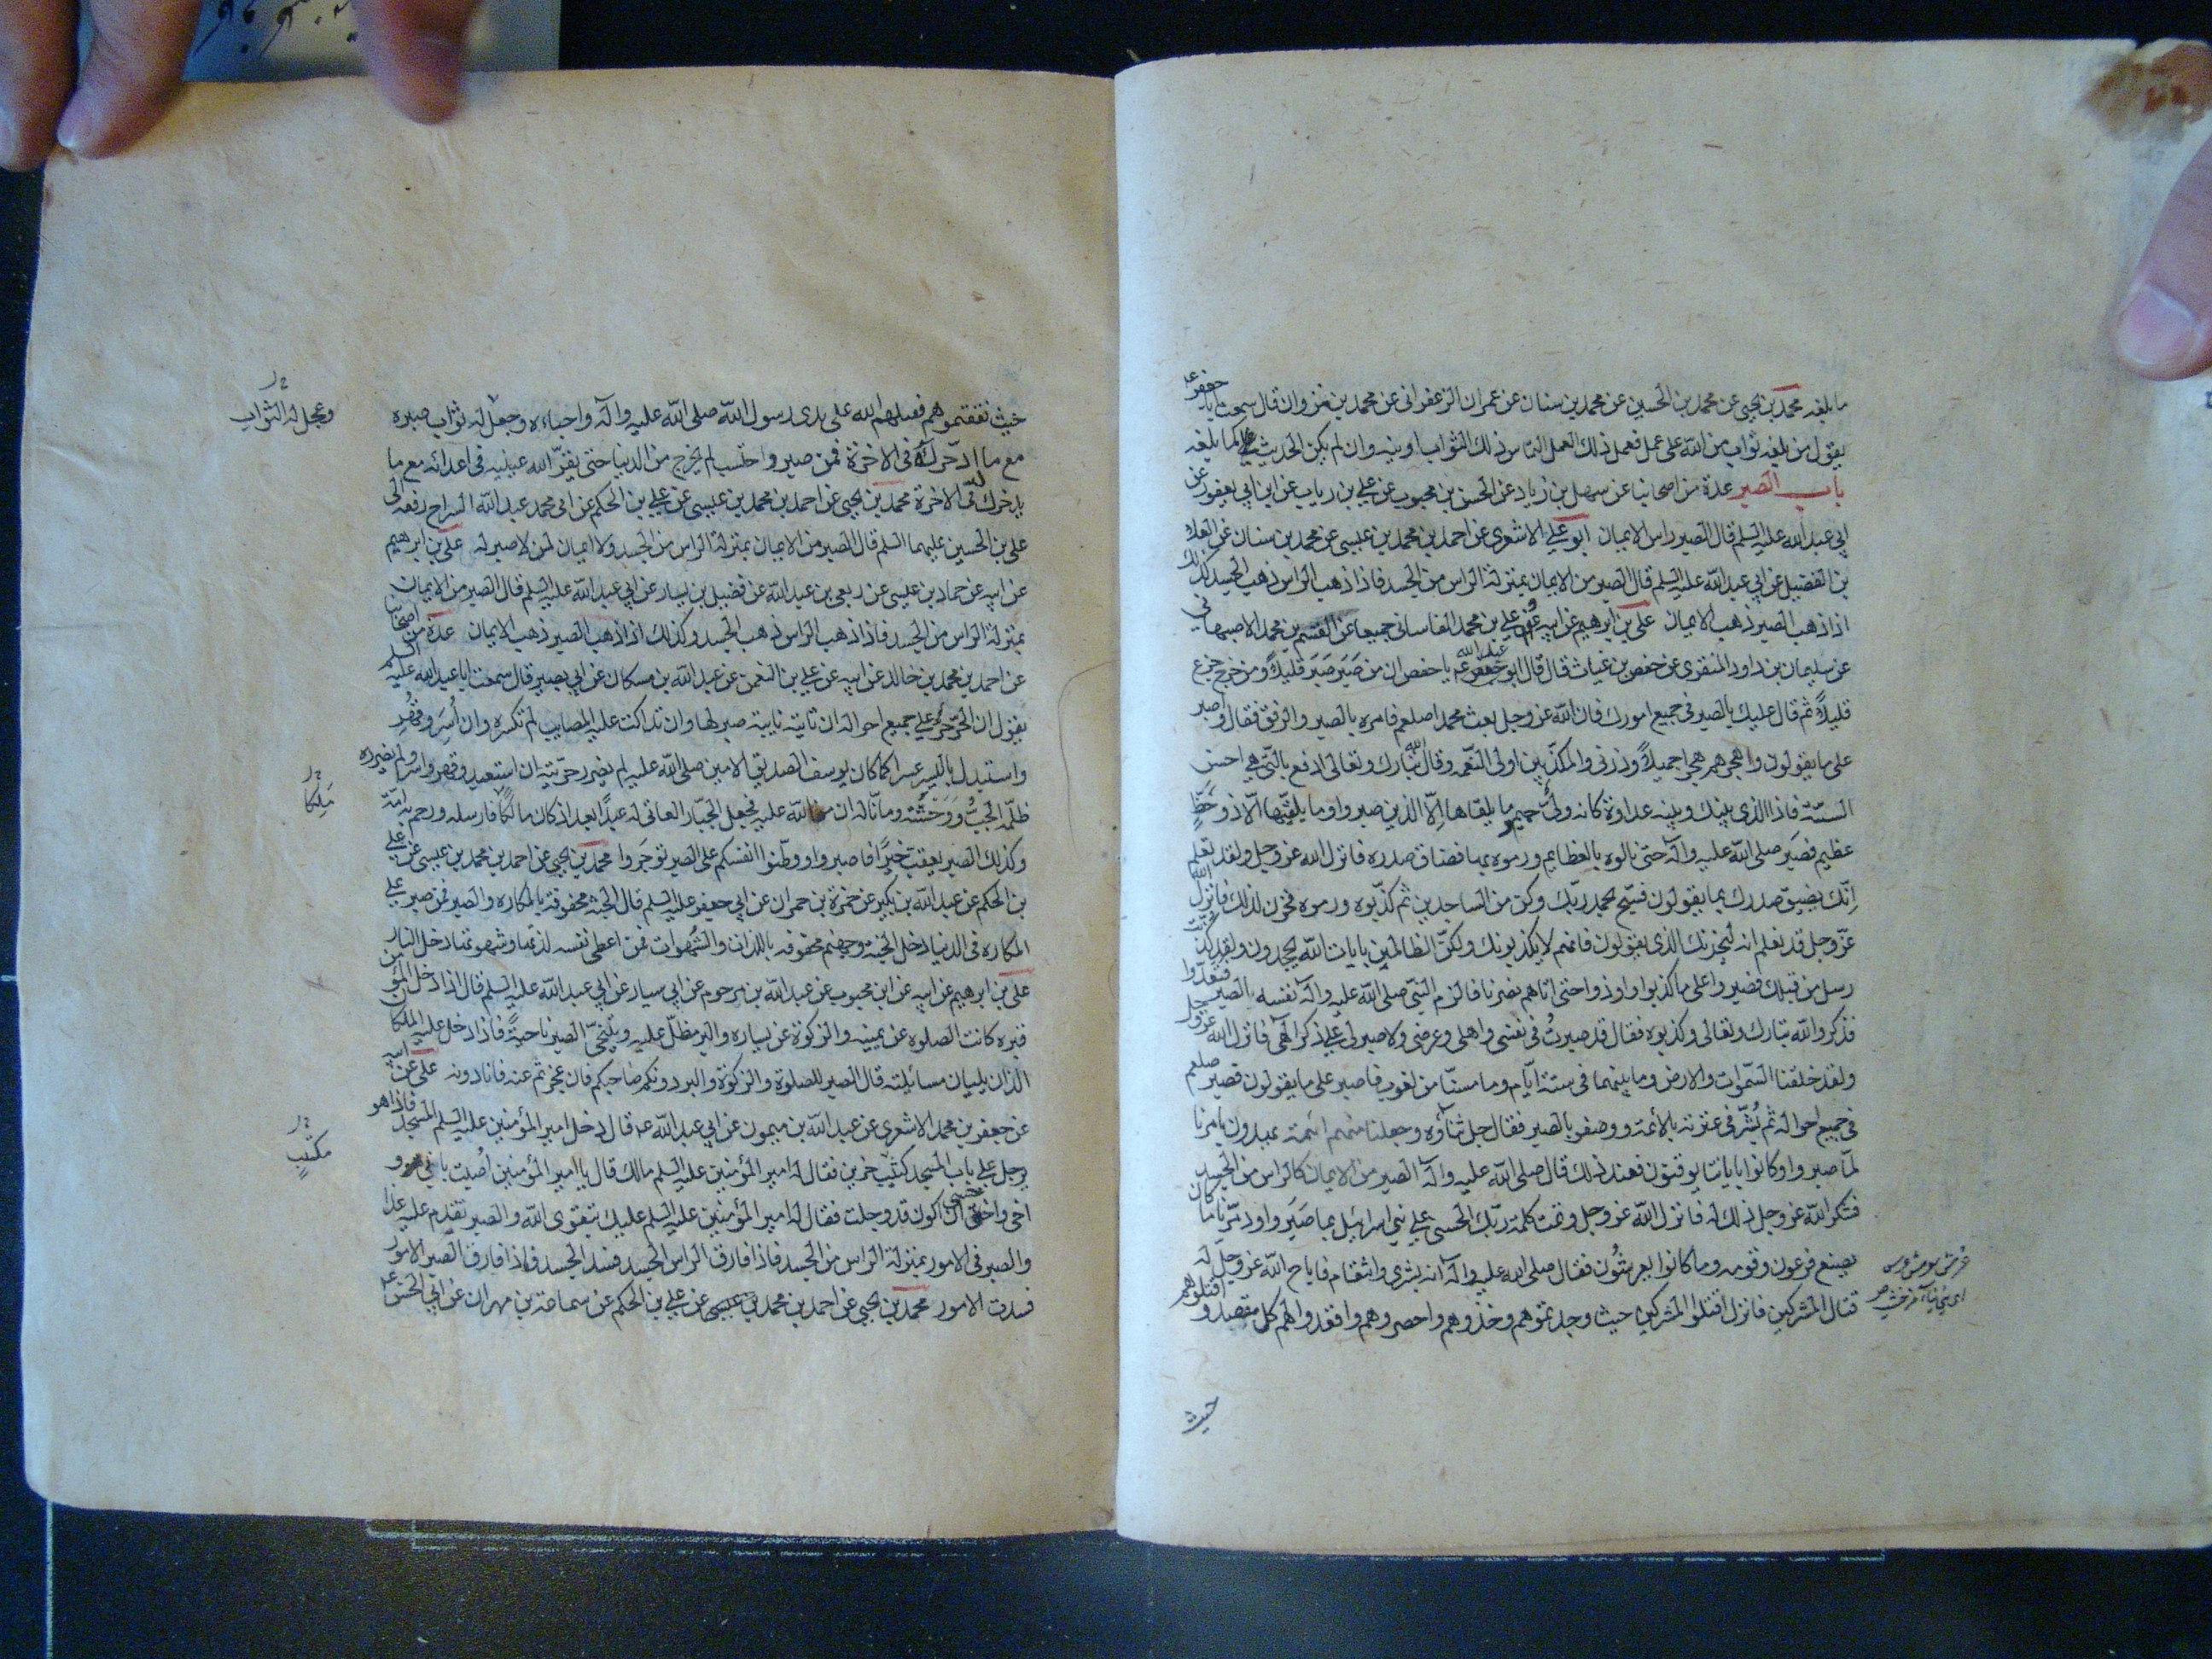 ما بلغه محمد بن يحيى عن محمد بن الحسين عن محمد بن سنان عن عمران الزعفرانى عن محمد بن مروان قال سمعت ابا جعفر ع
يقول من بلغه ثواب من الله على عمل فعمل ذلك العمل التماس ذلك الثواب اوتيه وان لم يكن الحديث كما بلغه
باب الصبر عدة من اصحابنا عن سهل بن زياد عن الحسن بن محبوب عن علي بن رياب عن ابن ابي يعفور عن
ابي عبد الله عليه السلم قال الصبر راس الايمان ابو علي الاشعرى عن احمد بن محمد بن عيسى عن محمد بن سنان عن العلا
بن الفضيل عن ابي عبد الله عليه السلم قال الصبر من الايمان بمنزلة الراس من الجسد فاذا ذهب الراس ذهب الجسد كذلك
اذا ذهب الصبر ذهب الايمان علي بن ابرهيم عن ابيه و علي بن محمد القاسانى جميعا عن القسم بن محمد الاصبهانى
عن سليمان بن داود المنقرى عن حفص بن غياث قال قال ابو عبد الله ع يا حفص ان من صَبَر صَبَر قليلاً و من جزع جزع
قليلاً ثم قال عليك بالصبر فى جميع امورك فان الله عز وجل بعث محمدا صلعم فامره بالصبر والرفق فقال واصبر
على ما يقولون واهجرهم هجرا جميلاً وذرنى والمكذّبين اولى النّعمه وقال تبارك وتعالى ادفع بالّتى هي احسن
السيئة فاذا الذى بينك وبينه عداوة كانه ولىّ حميم وما يلقاها اِلّا الذين صبروا وما يلقّيها الّا ذو حَظٍّ
عظيم فصبر صلى الله عليه وآله حتى نالوه بالعظايم ورموه بها فضاق صدره فانزل الله عز وجل ولقد نعلم
اِنّك يضيق صدرك بما يقولون فسبّح بحمد ربّك وكن من الساجدين ثم كذّبوه ورموه فحزن لذلك فانزل الله
عزّ وجل قد نعلم انه ليحزنك الذى يقولون فانهم لا يكذبونك ولكنّ الظالمين بايات الله يجحدون ولقد كذّبت
رسل من قبلك فصبروا على ما كذبوا واوذوا حتى اتاهم نصرنا فالزم النبىّ صلى الله عليه وآله نفسه الصبر فتعدّوا
فذكروا الله تبارك وتعالى وكذبوه فقال قد صبرتُ فى نفسى واهلى وعرضى ولا صبر لى على ذكر الهى فانزل الله عز وجل
ولقد خلقنا السّموات والارض وما بينهما فى ستة ايّام وما مسنّا من لغوب فاصبر على ما يقولون فصبر صلعم
فى جميع احواله ثم بُشّر فى عترته بالائمة ووصفوا بالصبر فقال جل ثناؤه وجعلنا منهم ائمة يهدون بامرنا
لمّا صبروا وكانوا باياتنا يوقنون فعند ذلك قال صلى الله عليه وآله الصبر من الايمان كالراس من الجسد
فشكر الله عز وجل ذلك له فانزل الله عز وجل وتمت كلمة ربّك الحسنى على بنى اسرائيل بما صبروا ودمّرنا ما كان
يصنع فرعون وقومه وما كانوا يعرشُون فقال صلى الله عليه وآله انه بشرى وانتقام فاباح الله عز وجلّ له
قتال المشركين فانزل اقتلوا المشركين حيث وجدتموهم وخذوهم واحصروهم واقعدوا لهم كل مرصد واقتلوهم
حيث
حيث ثقفتموهم فقتلهم الله على يدى رسول الله صلى الله عليه وآله واحباءه وجعل له ثواب صبره
وعجل له الثواب
مع ما ادّخر له فى الاخرة فمن صبر واحتسب لم يخرج من الدنيا حتى يقرّ الله عينيه فى اعدائه مع ما
يدخر له فى الاخرة محمد بن يحيى عن احمد بن محمد بن عيسى عن علي بن الحكم عن ابى محمد عبد الله السراج رفعه الى
على بن الحسين عليهما السلم قال الصبر من الايمان بمنزلة الراس من الجسد ولا ايمان لمن لا صبر له علي بن ابرهيم
عن ابيه عن حماد بن عيسى عن ربعي بن عبد الله عن فضيل بن يسار عن ابي عبد الله عليه السلم قال الصبر من الايمان
بمنزلة الراس من الجسد فاذا ذهب الراس ذهب الجسد وكذلك اذا ذهب الصبر ذهب الايمان عدة من اصحابنا
عن احمد بن محمد بن خالد عن ابيه عن علي بن النعمن عن عبد الله بن مسكان عن ابي بصير قال سمعت ابا عبد الله عليه السلم
يقول ان الحرّ حُرّ على جميع احواله ان نابته نايبة صبر لها وان تداكت عليه المصايب لم تكسره وان اُسر وقُهر
واستبدل باليسر عسرا كما كان يوسف الصديق الامين صلى الله عليه لم يضرر حريته ان استعبد وقهر واسر ولم يضرره
ظلمة الجبّ ووَحْشَتُه وما ناله ان منّ الله عليه فجعل الجبّار العاتى له عبداً بعد اذ كان مالكا فارسله ورحم به امّة
مَلِكًا
وكذلك الصبر يعقب خيرًا فاصبروا ووطّنوا انفسكم على الصبر توجَروا محمد بن يحيى عن احمد بن محمد بن عيسى عن علي
بن الحكم عن عبد الله بن بكير عن حمزة بن حمران عن ابي جعفر عليه السلم قال الجنة محفوفة بالمكاره والصبر فمن صبر على
المكاره فى الدنيا دخل الجنة وجهنم محفوفه باللذات والشهوات فمن اعطى نفسه لذتها وشهوتها دخل النار
علي بن ابرهيم عن ابيه عن ابن محبوب عن عبد الله بن مرحوم عن ابي سيار عن ابي عبد الله عليه السلم قال اذا دخل المؤمن
قبره كانت الصلوه عن يمينه والزكوة عن يساره والبر مطلّ عليه ويتنحّى الصبر ناحيةً فاذا دخل عليه الملكان
اللذان يليان مسائلته قال الصبر للصلوة والزكوة والبر دونكم صاحبكم فان عجزتم عنه فانا دونه علي عن ابيه
عن جعفر بن محمد الاشعرى عن عبد الله بن ميمون عن ابي عبد الله ع قال دخل امير المؤمنين عليه السلم المسجد فاذا هو
برجل على باب المسجد كئيب حزين فقال له امير المؤمنين عليه السلم مالك قال يا امير المؤمنين اُصبت بابى و
مكتئبٍ
اخى واخشى ان اكون قد وجلت فقال له امير المؤمنين عليه السلم عليك بتقوى الله والصبر تقدم عليه غدا
والصبر فى الامور بمنزلة الراس من الجسد فاذا فارق الراس الجسد فسد الجسد فاذا فارق الصبر الامور
فسدت الامور محمد بن يحيى عن احمد بن محمد بن عيسى عن علي بن الحكم عن سماعة بن مهران عن ابي الحسن ع